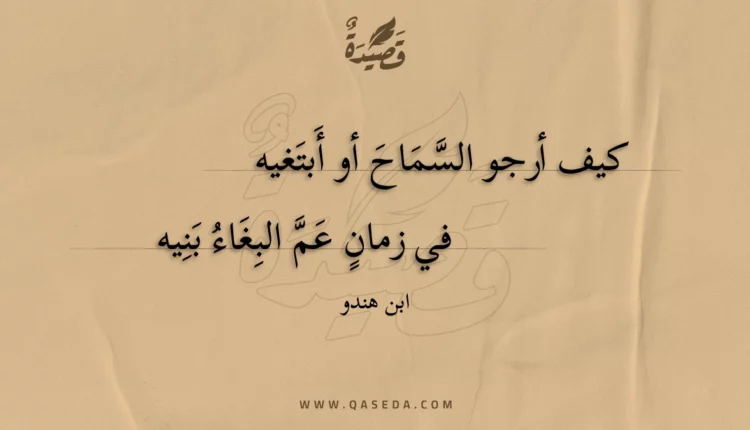 قَصِيدَةٌ
كيف أرجو السَّمَاحَ أو أَبتَغيه
في زمانٍ عَمَّ البِغَاءُ بَنِيه
ابن هندو
WWW.QASEDA.COM